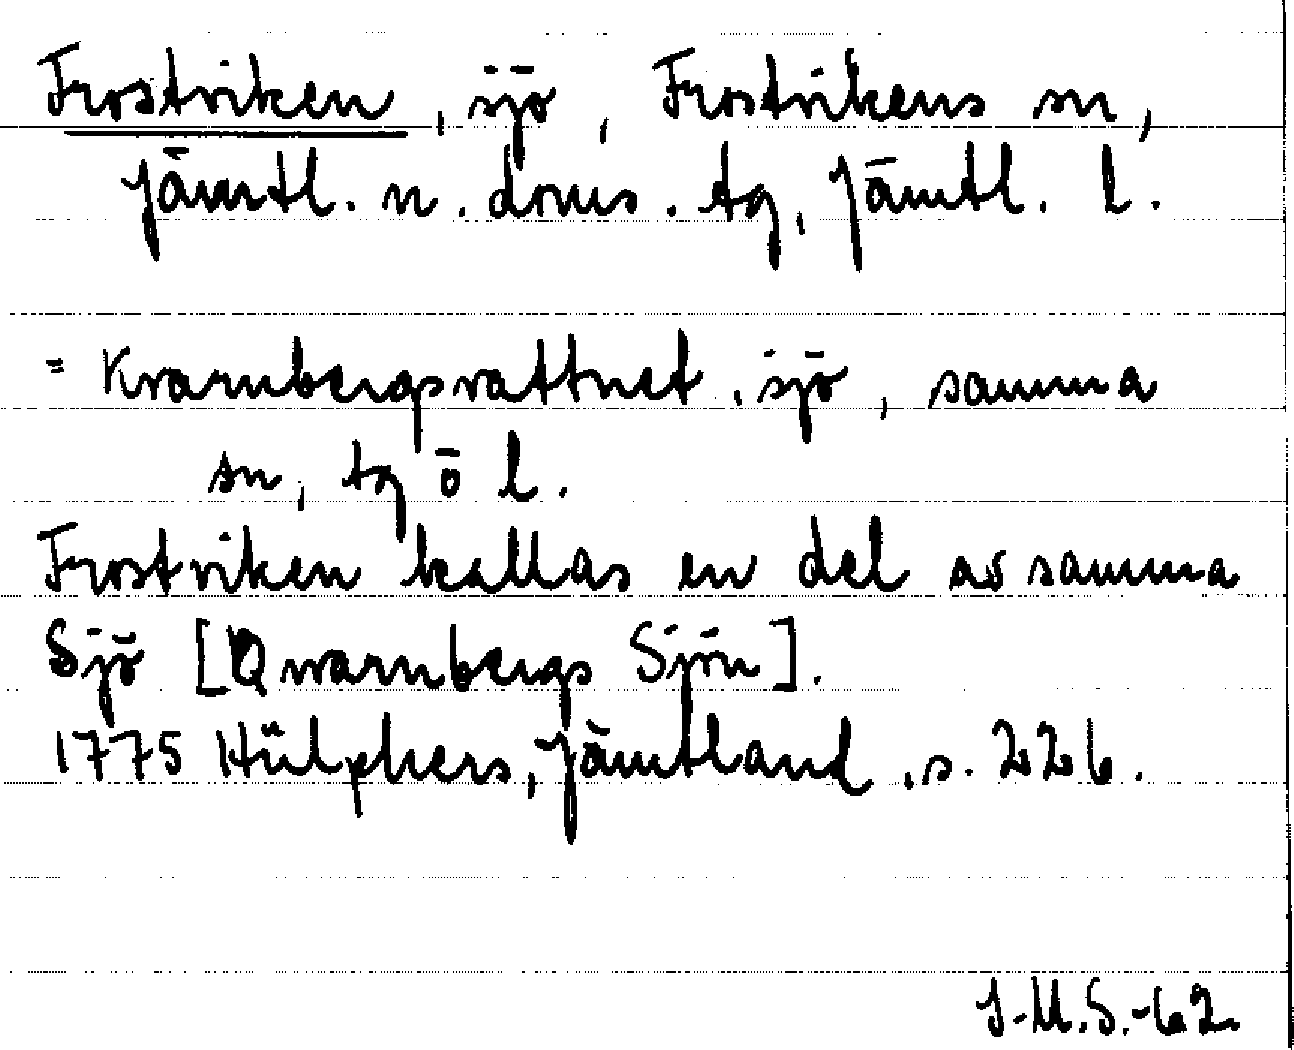 Frostviken, sjö, Frostvikens sn,
Jämtl. n. doms. tg, Jämtl. l.
= Kvarnbergsvattnet, sjö, samma
sn, tg o l.
Frostviken kallas en del av samma
Sjö [Qwarnbergs Sjön].
1775 Hülphers, Jämtland, s. 226.
J-M.S.-62